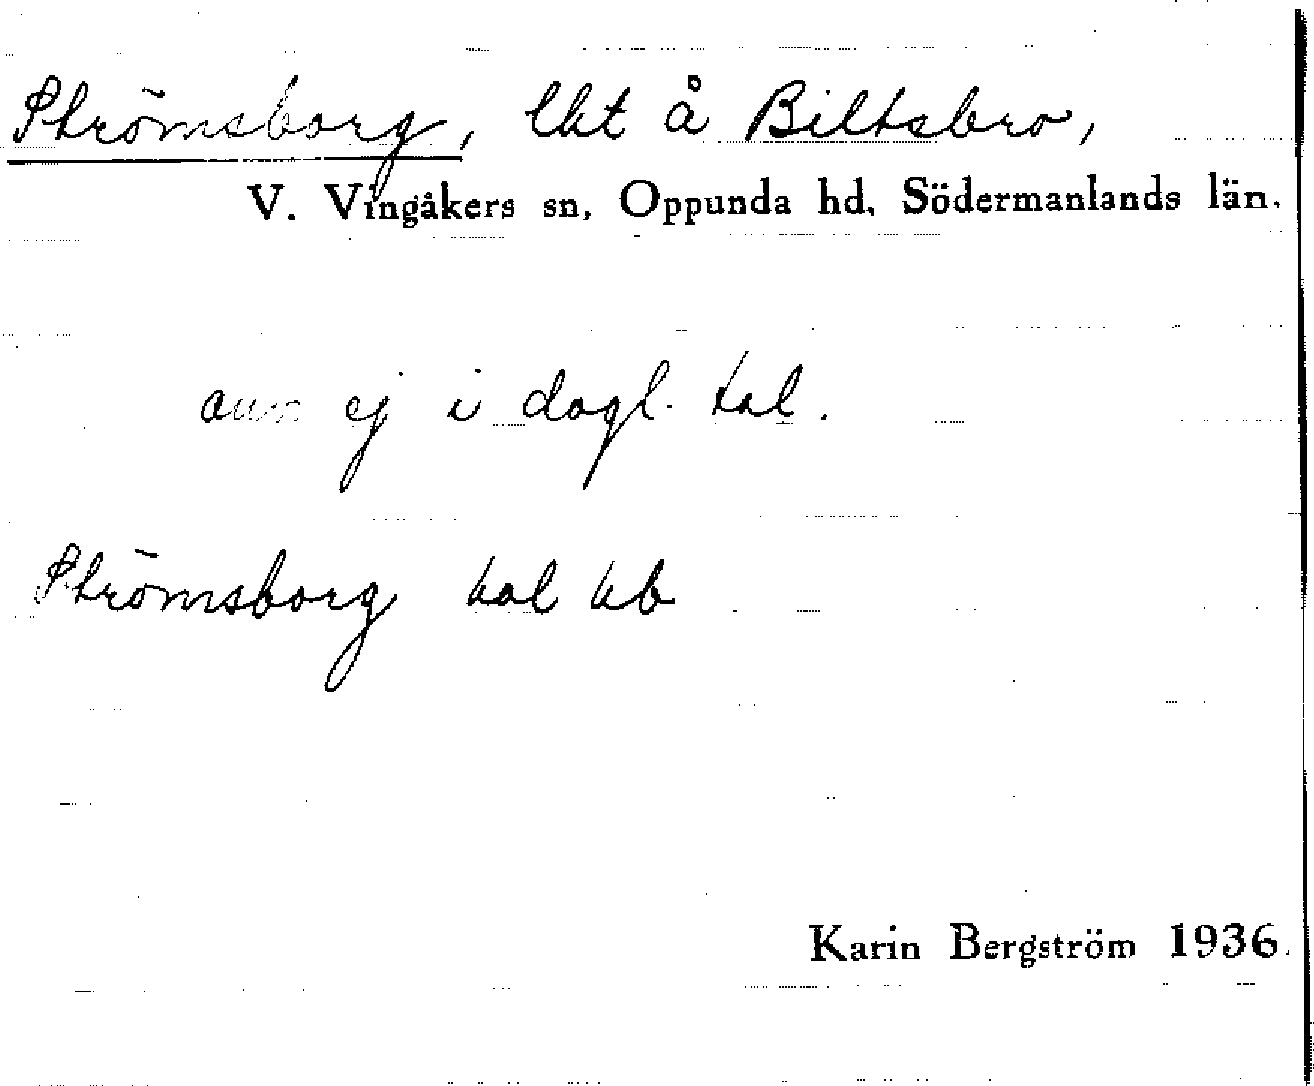 Strömsborg, lht å Biltsbro,
V. Vingåkers sn, Oppunda hd, Södermanlands län.
ej i dagl. tal.
Strömsborg
Karin Bergström 1936.